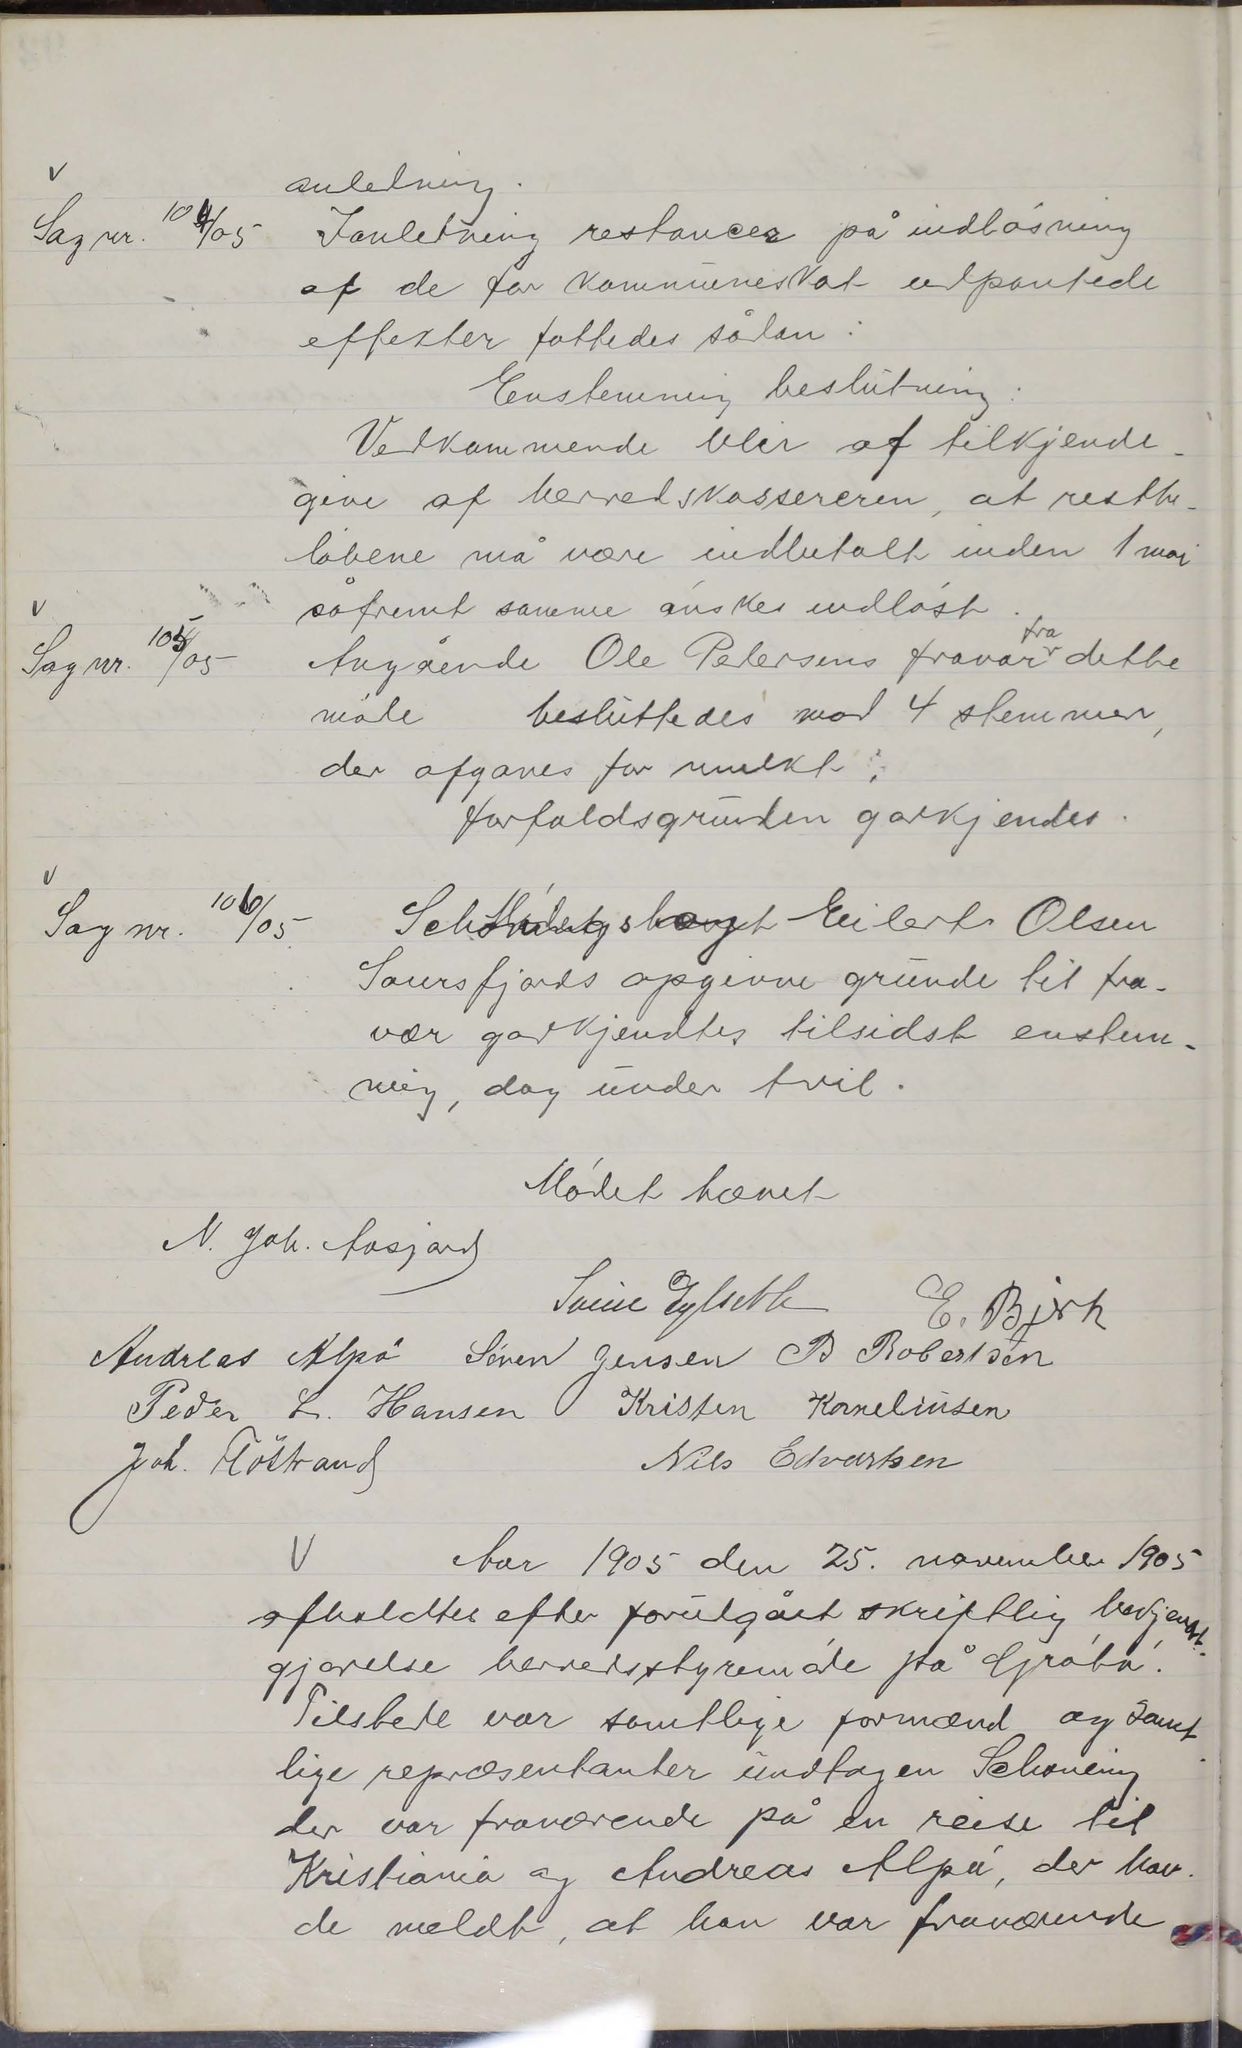 anledning.
Sag nr. 104/05 I anledning restancer på indløsning
af de for kommuneskat udpantede
effekter fattedes sådan:
Enstemmig beslutning:
Vedkommende blir at tilkjende-
give af herredskassereren, at restbe-
løbene må være indbetalt inden 1 mai
såfremt samme ønskes indløst.
Sag nr. 105/05 Angående Ole Petersens fravær fra dette
møde besluttedes mod 4 stemmer,
der afgaves for mulkt:
Forfaldsgrunden godkjendes.
Sag nr. 106/05 Eilert Olsen
Saursfjords opgivne grunde til fra-
vær godkjendtes tilsidst enstem-
mig, dog under tvil.
Mødet hævet
N. Joh. Aasjord
E. Bjerk
Andreas Alpø Søren Jensen B Robertsen
Peder L. Hansen Kristen Kornelíusen
Joh. Fløstrand Nils Edvartsen
V Aar 1905 den 25. november 1905
afholdtes efter forutgået skriftlig bekjendt-
gjørelse herredsstyremøde på Grøtø.
Tilstede var samtlige formænd og samt
lige repræsentanter undtagen Schøning
der var fraværende på en reise til
Kristiania og Andreas Alpø, der hav-
de meldt, at han var fraværende